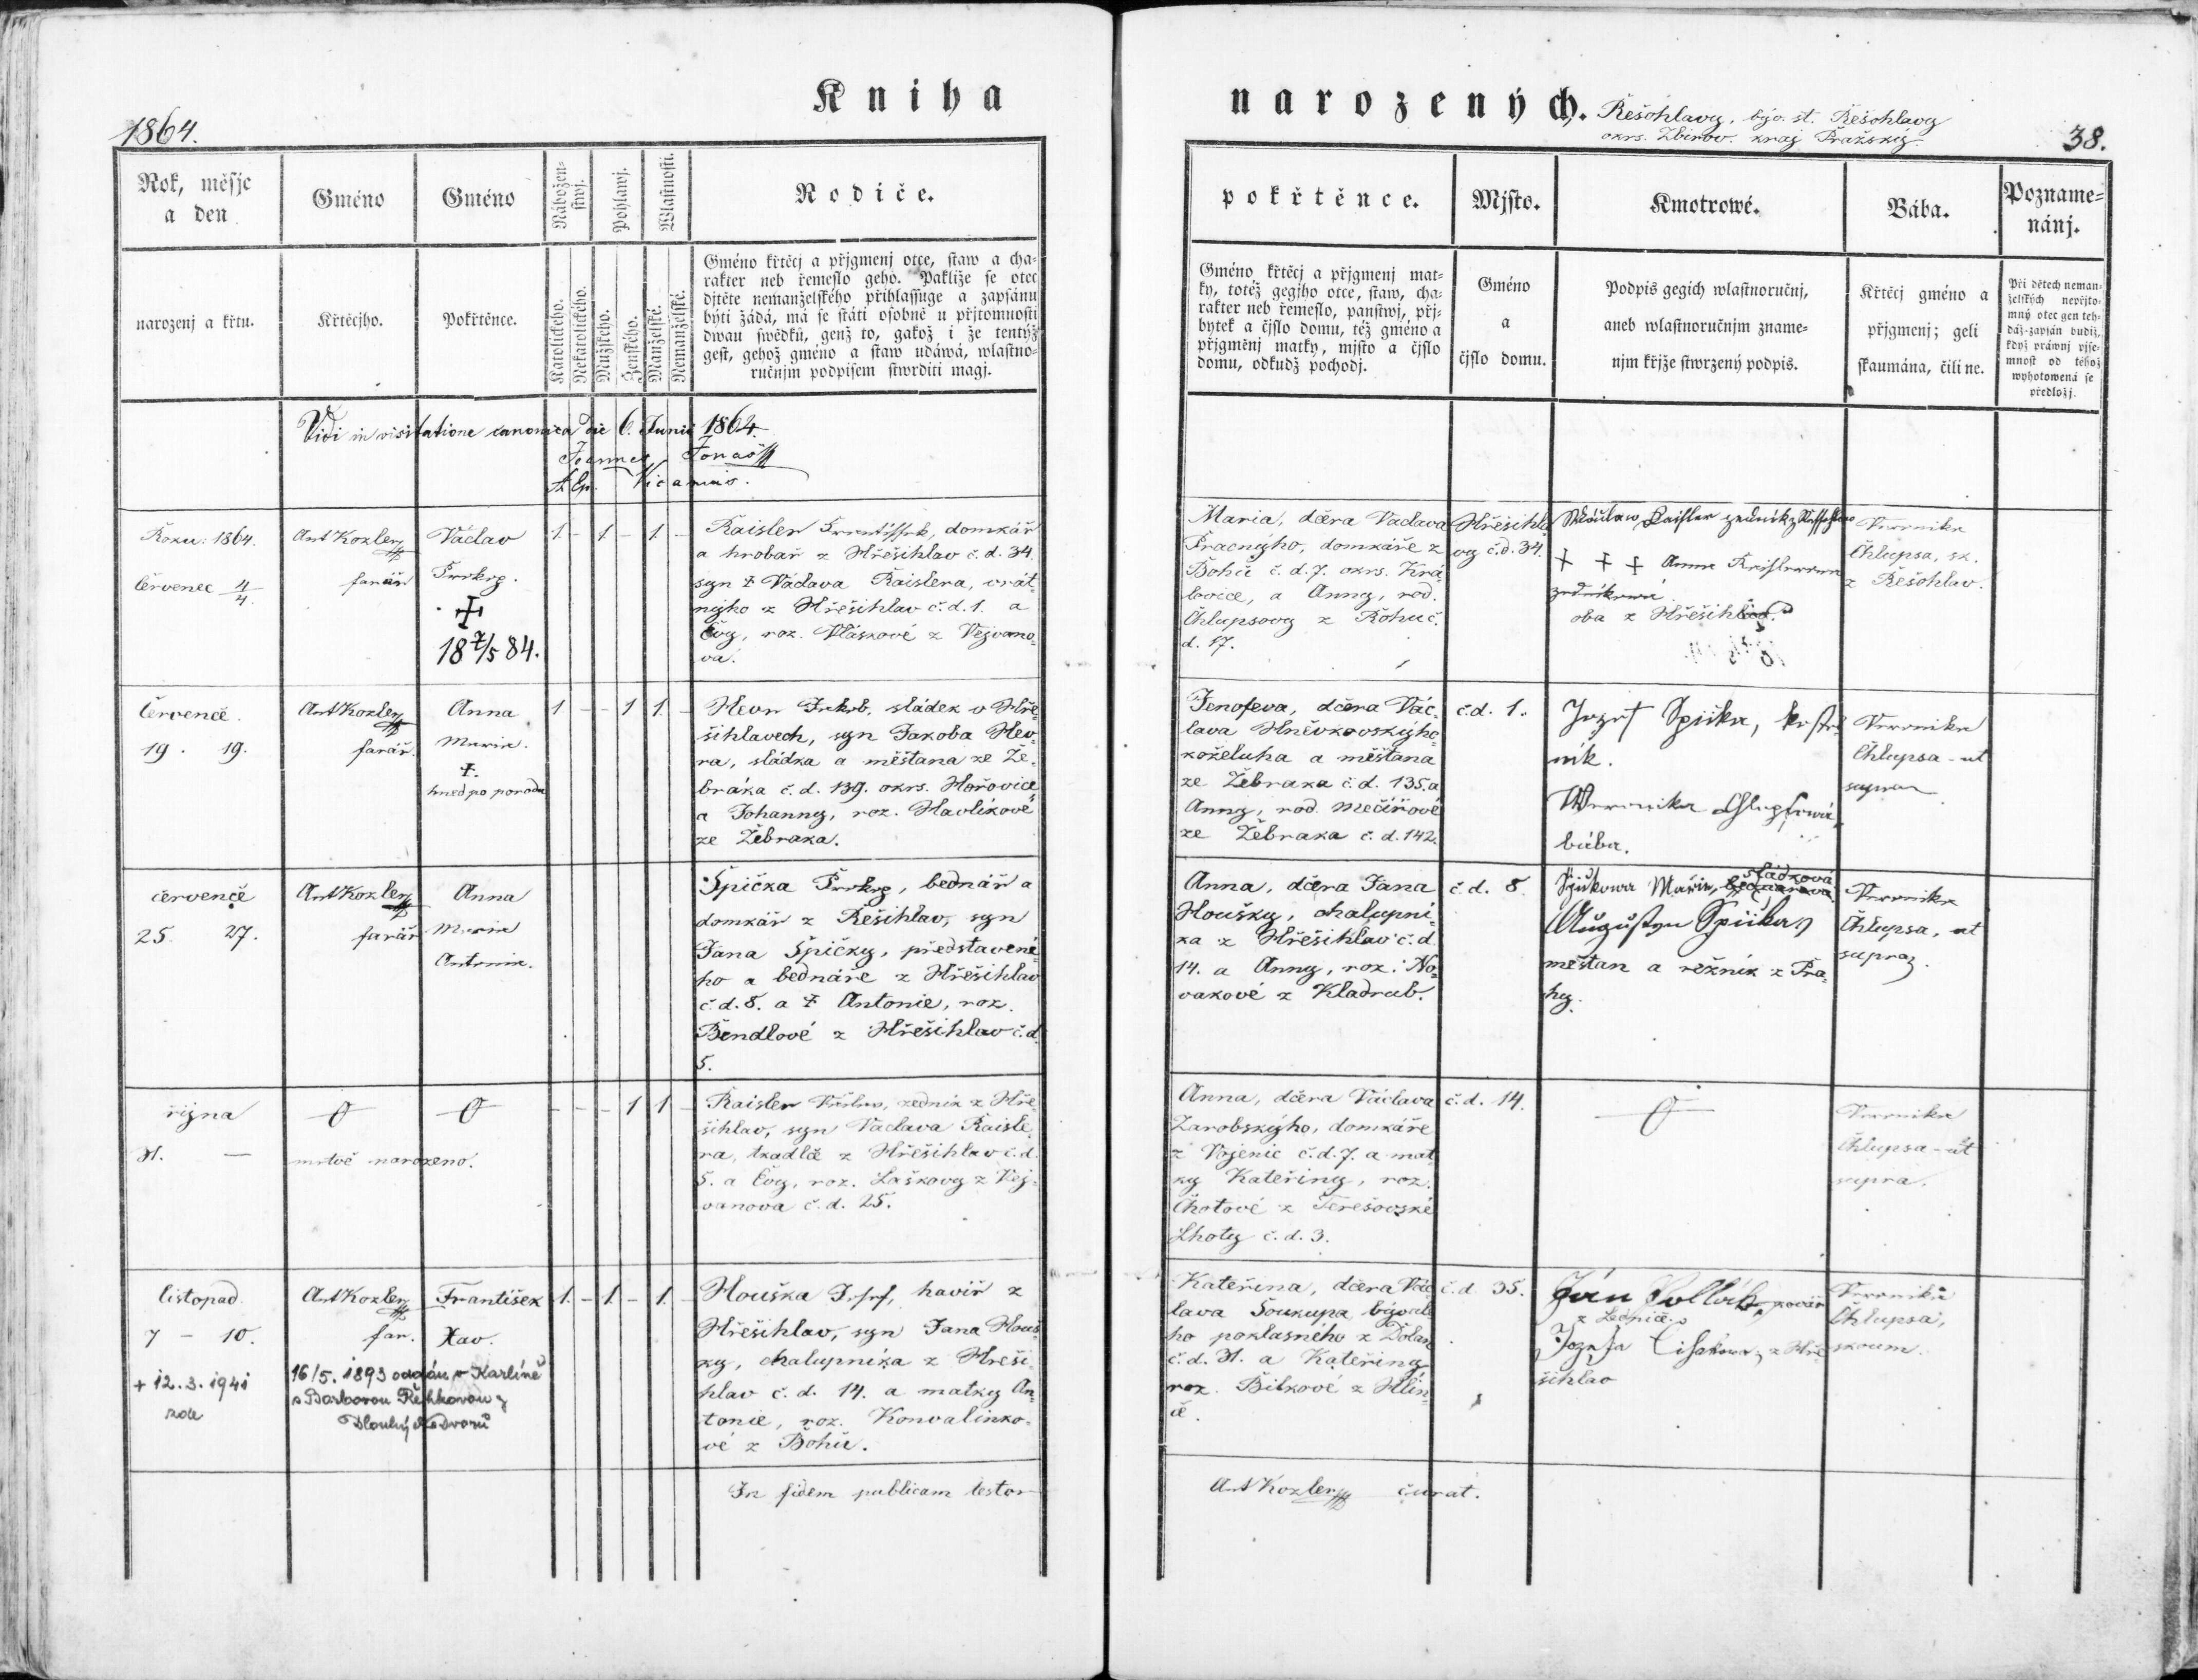 Kniha narozených.
Řešohlavy, býv. st. Řešohlavy
okrs. Zbirov. kraj Pražský.
1864.
38.
Rok, měsjc
a den
narozenj a křtu.
Gméno
Křtěcjho.
Gméno
Pokřtěnce.
Nábožen-
stwj.
Katolického.
Nekatolického.
Pohlawj.
Mužského.
Ženského.
Wlastnosti.
Manželské.
Nemanželské.
Rodiče.
Gméno křtěcj a přjgmenj otce, staw a cha-
rakter neb řemeslo geho. Pakliže se otec
djtěte nemanželského přihlassuge a zapsánu
býti žádá, má se státi osobně u přjtomnosti
dwau swědků, genž to, gakož i že tentýž
gest, gehož gméno a staw udáwá, wlastno-
ručnjm podpisem stwrditi magj.
pokřtěnce.
Gméno křtěcj a přjgmenj mat-
ky, totéž gegjho otce, staw, cha-
rakter neb řemeslo, panstwj, přj-
bytek a čjslo domu, též gméno a
přjgměnj matky, mjsto a čjslo
domu, odkudž pochodj.
Mjsto.
Gméno
a
čjslo domu.
Kmotrowé.
Podpis gegich wlastnoručnj,
aneb wlastnoručnjm zname-
njm křjže stwrzený podpis.
Bába.
Křtěcj gméno a
přjgmenj; geli
skaumána, čili ne.
Pozname-
nánj.
Při dětech neman-
želských nepřjto-
mný otec gen teh-
dáž zapsán budiž,
když práwnj pjse-
mnost od téhož
wyhotowená se
předložj.
Vidi in visitatione canonica die 6. Junii 1864.
Joannes Jonáš
Vicarius.
Roku: 1864.
červenec 4/4.
Ant Kozler
farář
Václav
Prokop.
✝
18 7/5 84.
1 - 1 - 1 -
Raisler Frantissek, domkář
a hrobař z Hřešihlav č.d. 34.
syn ✝ Václava Raislera, vrát-
nýho z Hřešihlav č.d. 1. a
Evy, roz. Vláskové z Vejvano-
va.
Maria, dcera Vaclava
Pracnýho, domkáře z
Bohů č.d. 7. okrs. Kra-
lovice, a Anny, rod.
Chlupsovy z Bohu č.
d. 17.
Hřešihla-
vy č.d. 34.
Wáclaw Raisler zedník z
✝ ✝ ✝ Anna Reislerowa
zedníkowá
oba z Hřešihlav
Veronika
Chlupsa, sk.
z Řešohlav.
července.
19. 19.
Ant Kozler
farář.
Anna
Maria.
✝.
hned po porodu
1 - - 1 1 -
Hevr Jakob, sládek v Hře-
šihlavech, syn Jakoba Hev-
ra, sládka a měšťana ze Že-
bráka č.d. 139. okrs. Hořovice
a Johanny, roz. Havlíkové
ze Žebraka.
Jenofeva, dcera Vác-
lava Hněvkovskýho
koželuha a měšťana
ze Žebraka č.d. 135. a
Anny, rod. Mečířové
ze Žebraka č.d. 142.
č.d. 1.
Jozef Špička, kostel-
ník.
Weronika Chlupsowá,
bába.
Veronika
Chlupsa - ut
supra
července
25. 27.
Ant Kozler
farář
Anna
Maria
Antonia.
Špička Prokop, bednář a
domkář z Řešihlav, syn
Jana Špičky, představené-
ho a bednáře z Hřešihlav
č.d. 8. a ✝ Antonie, roz.
Bendlové z Hřešihlav č.d.
5.
Anna, dcera Jana
Houšky, chalupní-
ka z Hřešihlav č.d.
14. a Anny, roz. No-
vakové z Kladrub.
č.d. 8.
Špičkowa Marie, bednarova sládkova
Augustyn Špička
měšťan a řežník z Pra-
hy.
Veronika
Chlupsa, ut
supra.
řijna
31. —
mrtvě narozeno.
- - - 1 1 -
Raisler Václav, zedník z Hře-
šihlav, syn Vaclava Raisle-
ra, tkadlce z Hřešihlav č.d.
5. a Evy, roz. Laškovy z Vej-
vanova č.d. 25.
Anna, dcera Václava
Zarobskýho, domkáře
z Vojenic č.d. 7. a mat-
ky Kateřiny, roz.
Chotové z Terešovské
Lhoty č.d. 3.
č.d. 14.
Veronika
Chlupsa - ut
supra.
listopad
7 - 10.
+ 12.3.1941
zde
Ant Kozler
far.
František
Xav.
16/5. 1893 oddán v Karlíně
s Barborou Řehkovou z
Dlouhých Dvorů
1. - 1. - 1. -
Houška Josef, havíř z
Hřešihlav, syn Jana Houš-
ky, chalupníka z Hřeši-
hlav č.d. 14. a matky An-
tonie, roz. Konvalinko-
vé z Bohů.
Kateřina, dcera Vác-
lava Soukupa, býval-
ho poklasného z Dolan
č.d. 31. a Kateřiny
roz. Bílkové z Hlin-
ce.
č.d. 35.
Ján Pollák, kovář
Jozefa z Hře-
šihlav
Veronika
Chlupsa,
skoum.
In fidem publicam testor
Ant Kozler curat.